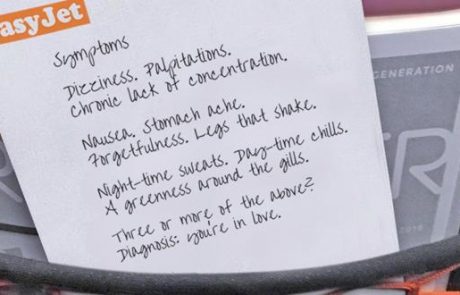 asyJet
Symptoms
Dizziness. Palpitations.
Chronic lack of concentration.
Nausea. Stomach ache.
Forgetfulness. Legs that shake.
Night-time sweats. Day-time chills.
A greenness around the gills.
Three or more of the above?
Diagnosis: you're in love.
GENERATION
R